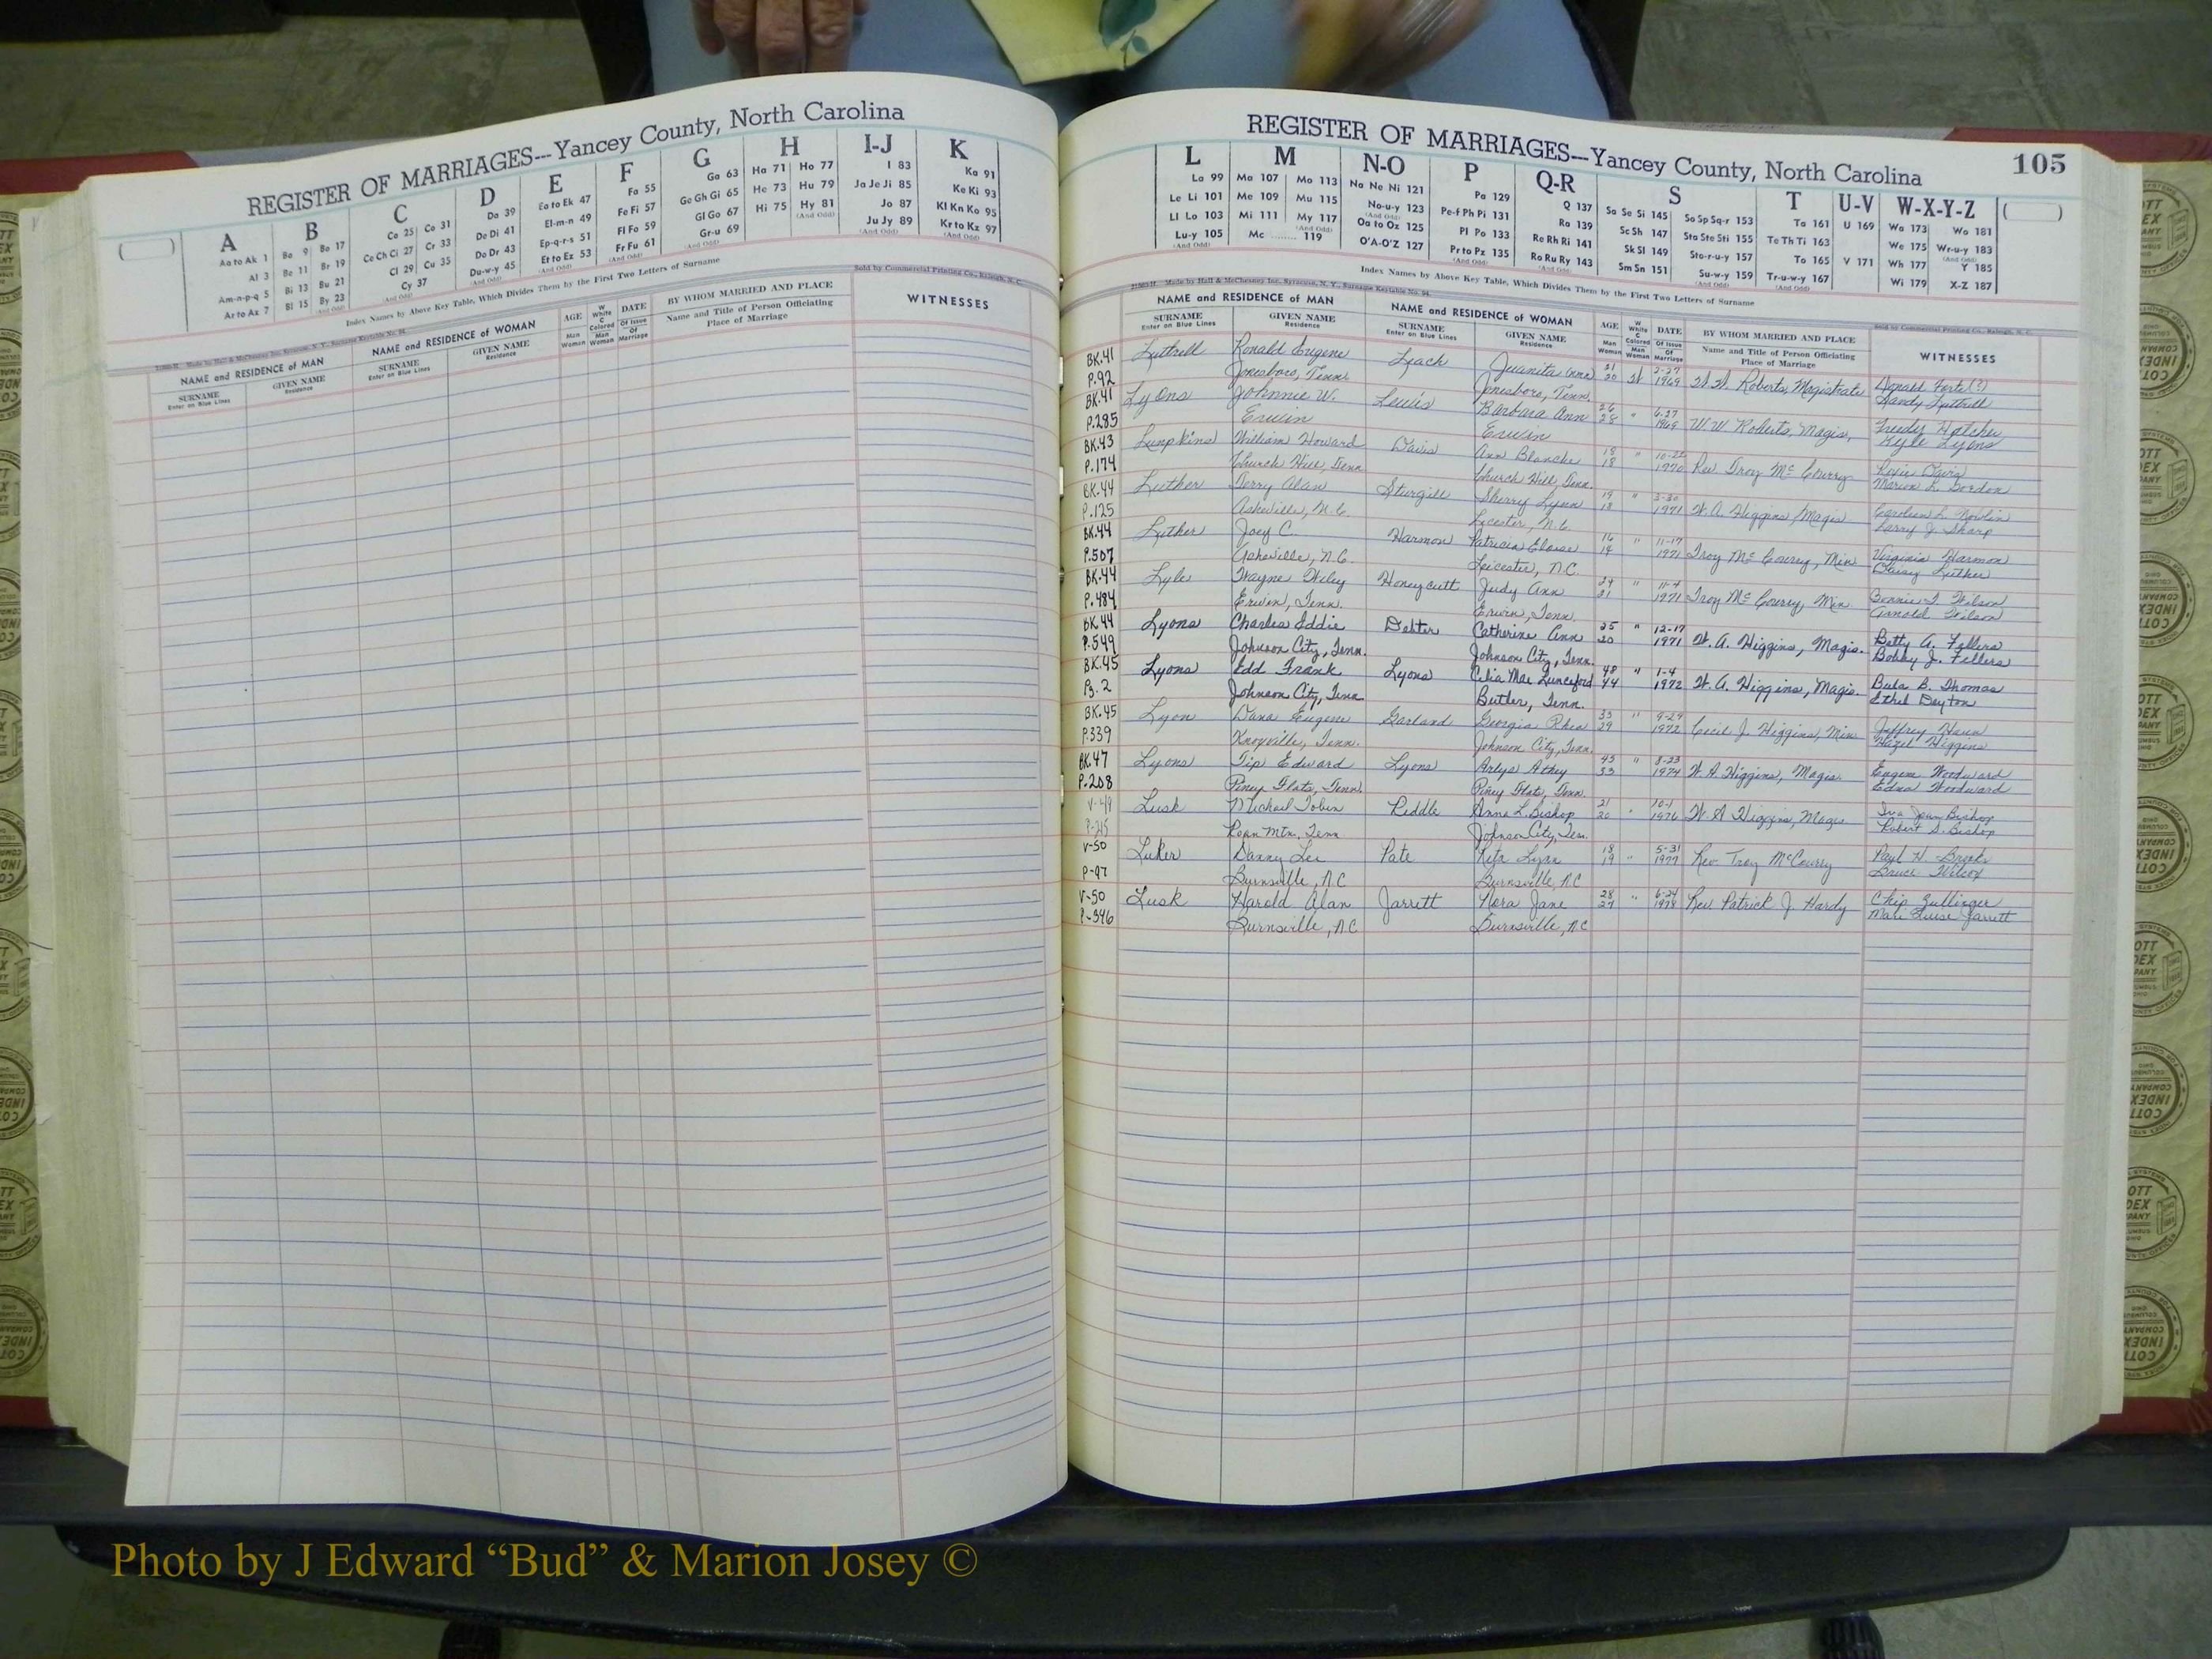 REGISTER OF MARRIAGES---Yancey County, North Carolina
A B C D E F G H I-J K
Aa to Ak 1
Al 3
Am-n-p-q 5
Ar to Az 7
Ba 9 Bo 17
Be 11 Br 19
Bi 13 Bu 21
Bl 15 By 23
(And Odd)
Ca 25 Co 31
Ce Ch Ci 27 Cr 33
Cl 29 Cu 35
Cy 37
(And Odd)
Da 39
De Di 41
Do Dr 43
Du-w-y 45
(And Odd)
Ea to Ek 47
El-m-n 49
Ep-q-r-s 51
Et to Ez 53
(And Odd)
Fa 55
Fe Fi 57
Fl Fo 59
Fr Fu 61
(And Odd)
Ga 63
Ge Gh Gi 65
Gl Go 67
Gr-u 69
(And Odd)
Ha 71 Ho 77
He 73 Hu 79
Hi 75 Hy 81
(And Odd)
I 83
Ja Je Ji 85
Jo 87
Ju Jy 89
(And Odd)
Ka 91
Ke Ki 93
Kl Kn Ko 95
Kr to Kz 97
(And Odd)
Index Names by Above Key Table, Which Divides Them by the First Two Letters of Surname
Sold by Commercial Printing Co., Raleigh, N. C.
NAME and RESIDENCE of MAN
SURNAME
Enter on Blue Lines
GIVEN NAME
Residence
NAME and RESIDENCE of WOMAN
SURNAME
Enter on Blue Lines
GIVEN NAME
Residence
AGE
Man
Woman
W White
C Colored
Man
Woman
DATE
Of Issue
Of Marriage
BY WHOM MARRIED AND PLACE
Name and Title of Person Officiating
Place of Marriage
WITNESSES
REGISTER OF MARRIAGES---Yancey County, North Carolina
105
L M N-O P Q-R S T U-V W-X-Y-Z
La 99
Le Li 101
Ll Lo 103
Lu-y 105
(And Odd)
Ma 107 Mo 113
Me 109 Mu 115
Mi 111 My 117
(And Odd)
Mc ........ 119
Na Ne Ni 121
No-u-y 123
(And Odd)
Oa to Oz 125
O'A-O'Z 127
Pa 129
Pe-f Ph Pi 131
Pl Po 133
Pr to Pz 135
(And Odd)
Q 137
Ra 139
Re Rh Ri 141
Ro Ru Ry 143
(And Odd)
Sa Se Si 145 So Sp Sq-r 153
Sc Sh 147 Sta Ste Sti 155
Sk Sl 149 Sto-r-u-y 157
Sm Sn 151 Su-w-y 159
(And Odd)
Ta 161
Te Th Ti 163
To 165
Tr-u-w-y 167
(And Odd)
U 169
V 171
Wa 173 Wo 181
We 175 Wr-u-y 183
(And Odd)
Wh 177 Y 185
Wi 179 X-Z 187
Index Names by Above Key Table, Which Divides Them by the First Two Letters of Surname
Made by Hall & McChesney Inc. Syracuse, N. Y., Surname Keytable No. 94.
Sold by Commercial Printing Co., Raleigh, N. C.
NAME and RESIDENCE of MAN
SURNAME
Enter on Blue Lines
GIVEN NAME
Residence
NAME and RESIDENCE of WOMAN
SURNAME
Enter on Blue Lines
GIVEN NAME
Residence
AGE
Man
Woman
W White
Colored
Man
Woman
DATE
Of Issue
Of Marriage
BY WHOM MARRIED AND PLACE
Name and Title of Person Officiating
Place of Marriage
WITNESSES
BK.41 Luttrell Ronald Eugene Leach Juanita Ann 21 W 2-27 W.W. Roberts, Magistrate Donald Forte(?)
P.92 Jonesboro, Tenn. Jonesboro, Tenn. 20 1969 Sandy Luttrell
BK.41 Lyons Johnnie W. Lewis Barbara Ann 26 " 6-27 W.W. Roberts, Magis. Freedy Hatcher
P.285 Erwin Erwin 28 1969 Kyle Lyons
BK.43 Lumpkins William Howard Davis Ann Blanche 18 " Rev. Troy McCourry
P.174 Church Hill, Tenn. Church Hill, Tenn. 18 1970 Marion L. Gordon
BK.44 Luther Terry Alan Sturgill Sherry Lynn 19 " 3-30 W.A. Higgins, Magis. Carolyn L. Nowlin
P.125 Asheville, N.C. Leicester, N.C. 18 1971 Larry J. Sharp
BK.44 Luther Joey C. Harmon Patricia Eloise 16 " 11-17 Troy McCourry, Min Virginia Harmon
P.507 Asheville, N.C. Leicester, N.C. 1971 Luther
BK.44 Lyle Wayne Wiley Honeycutt Judy Ann 24 " 11-4 Troy McCourry, Min Bonnie T. Wilson
P.484 Erwin, Tenn. Erwin, Tenn. 21 1971 Arnold Wilson
BK.44 Lyons Charles Eddie Debter Catherine Ann 25 " 12-17 W. A. Higgins, Magis. Betty A. Fellers
P.549 Johnson City, Tenn. Johnson City, Tenn. 20 1971 Bobby J. Fellers
BK.45 Lyons Edd Frank Lyons Celia Mae Lunceford 48 " 1-4 W. A. Higgins, Magis. Bula B. Thomas
Pg. 2 Johnson City, Tenn. Butler, Tenn. 44 1972 Ethel Deyton
BK.45 Lyon Dana Eugene Garland Georgia Rhea 33 " 9-29 Cecil J. Higgins, Min. Jeffrey Hann
P.339 Knoxville, Tenn. Johnson City, Tenn. 29 1972 Hazel Higgins
BK.47 Lyons Tip Edward Lyons Arlys Athey 43 " 8-23 W. A. Higgins, Magis. Eugene Woodward
P.208 Piney Flats, Tenn. Piney Flats, Tenn. 33 1974 Edna Woodward
V-49 Lusk Michael Tobin Riddle Anna L. Bishop 21 " 10-1 W A Higgins, Magis Iva Jean Bishop
P-315 Roan Mtn. Tenn Johnson City, Ten. 20 1976 Robert D. Bishop
V-50 Luker Danny Lee Pate Rita Lynn 18 " 5-31 Rev Troy McCourry Paul H. Brooks
P-97 Burnsville, NC Burnsville, NC 19 1977 Bruce Wilcox
V-50 Lusk Harold Alan Jarrett Nora Jane 28 " 6-24 Rev Patrick J. Hardy Chip Zullinger
P-346 Burnsville, NC Burnsville, NC 27 1978 Jarrett
Photo by J Edward “Bud” & Marion Josey ©